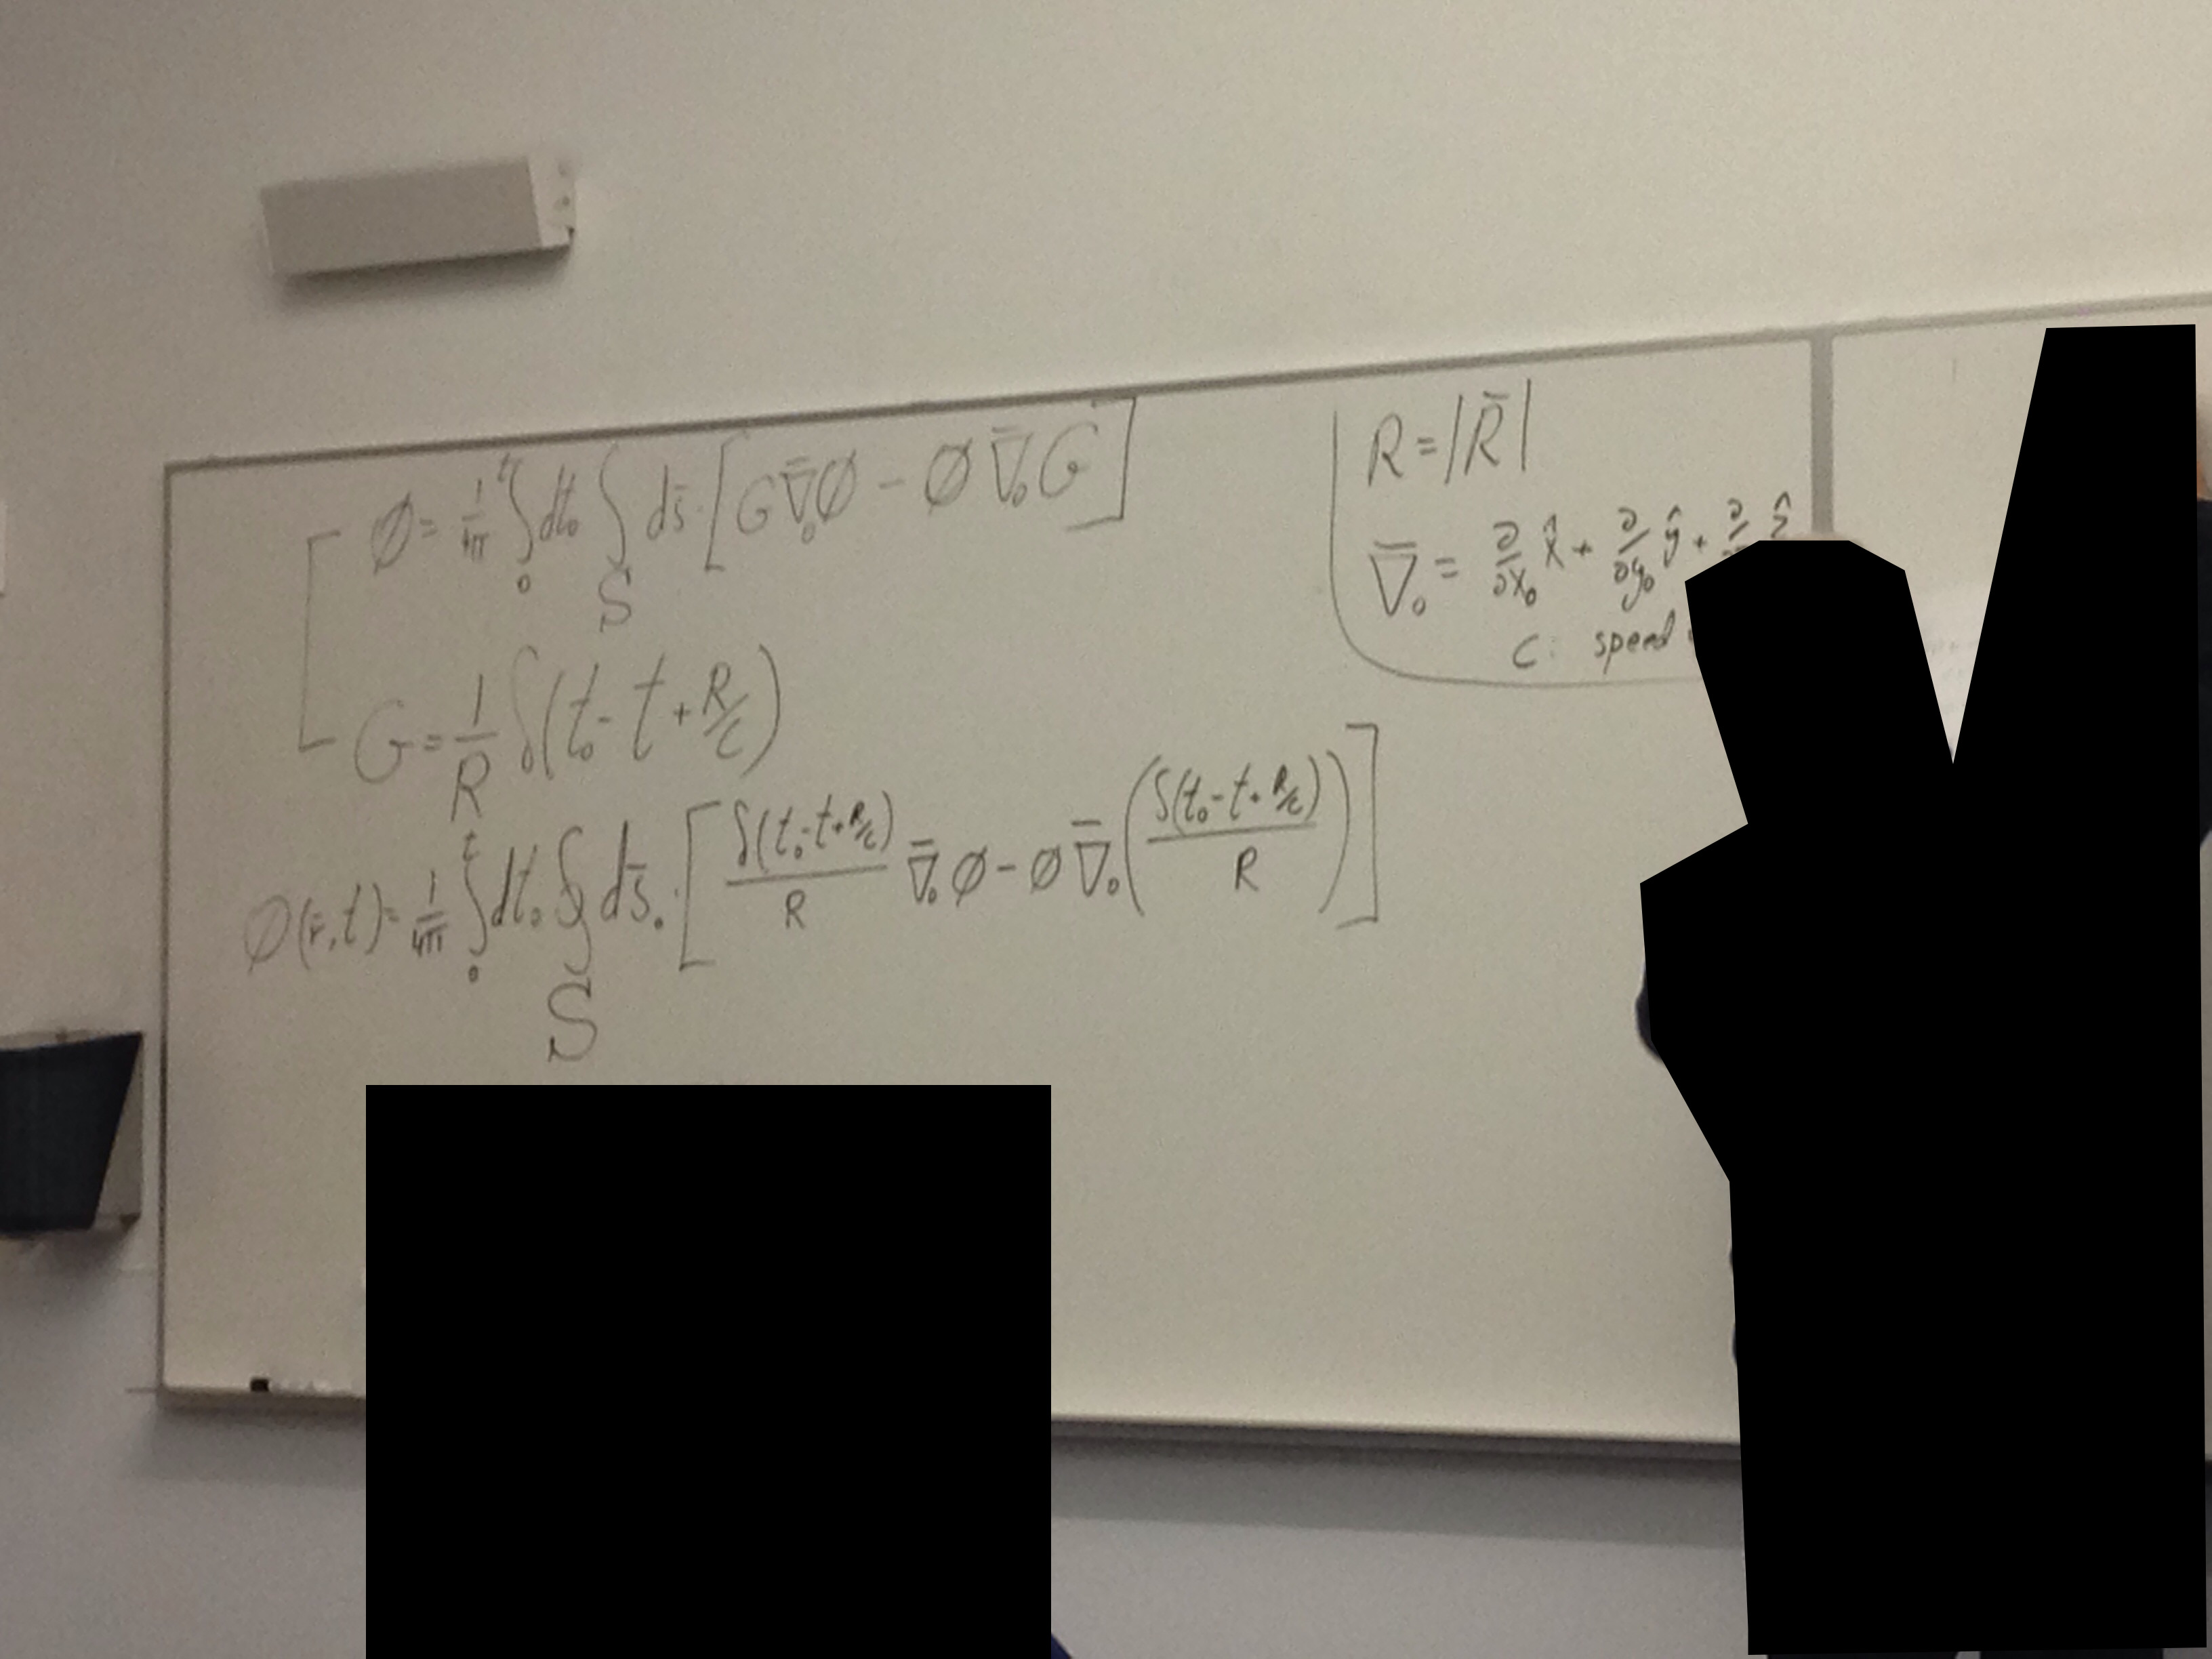 ∅ = 1/4π ∫₀ᵗ dt₀ ∫_S ds̄ · [G ∇̄₀∅ − ∅ ∇̄₀G]
G = 1/R δ(t₀ − t + R/c)
∅(r̄, t) = 1/4π ∫₀ᵗ dt₀ ∫_S ds̄₀ · [δ(t₀ − t + R/c)/R ∇̄₀∅ − ∅ ∇̄₀(δ(t₀ − t + R/c)/R)]
R = |R̄|
∇̄₀ = ∂/∂x₀ x̂ + ∂/∂y₀ ŷ + ∂/ ẑ
c: speed